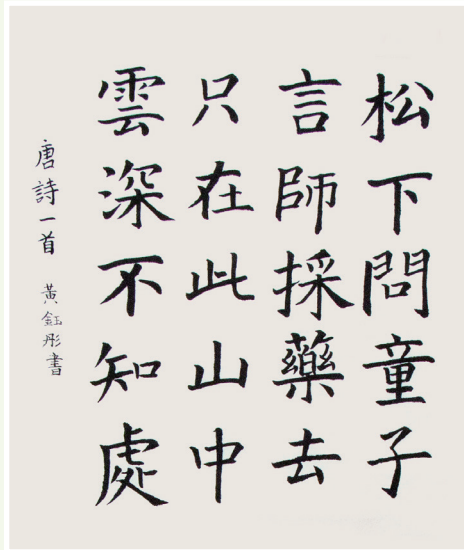 松下問童子
言師採藥去
只在此山中
雲深不知處
唐詩一首 黃鈺彤書